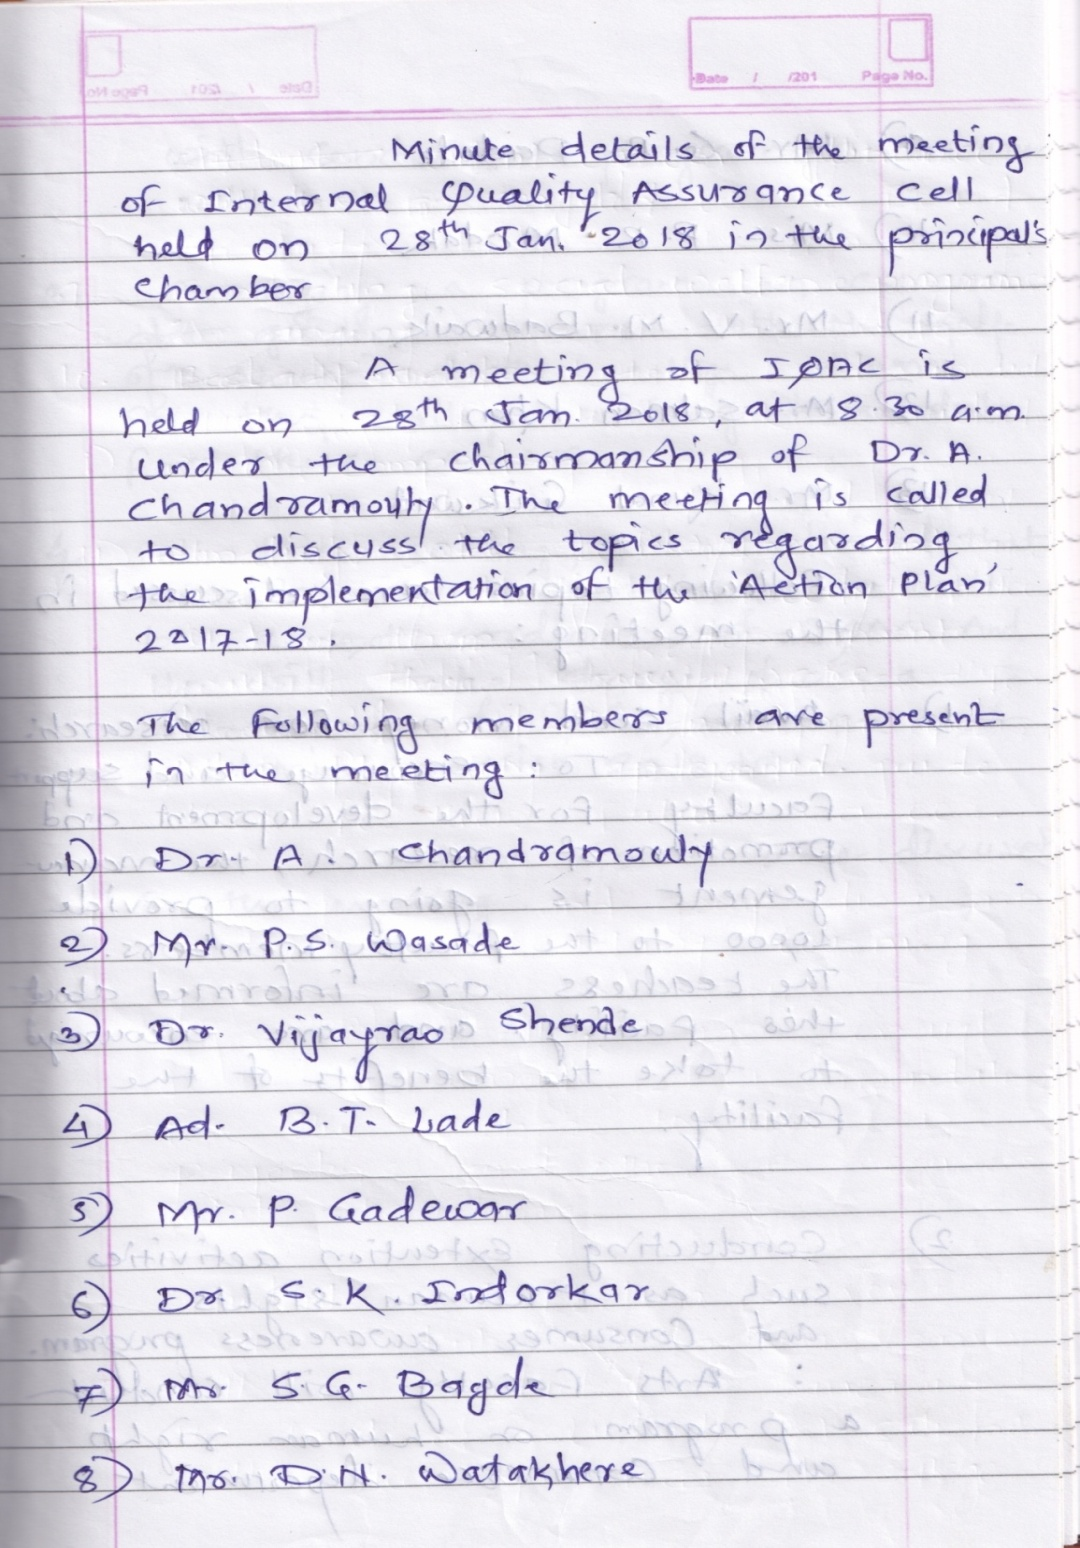 Date / /201 Page No.
Minute details of the meeting
of Internal Quality Assurance Cell
held on 28th Jan. 2018 in the principal's
chamber
A meeting of IQAC is
held on 28th Jan. 2018, at 8.30 a.m.
under the chairmanship of Dr. A.
Chandramouly. The meeting is called
to discuss the topics regarding
the implementation of the 'Action Plan'
2017-18.
The following members are present
in the meeting :
1) Dr. A. Chandramouly
2) Mr. P.S. Wasade
3) Dr. Vijjayrao Shende
4) Ad. B.T. Lade
5) Mr. P. Gadewar
6) Dr. S.K. Indorkar
7) Mr. S.G. Bagde
8) Mr. D.N. Watakhere